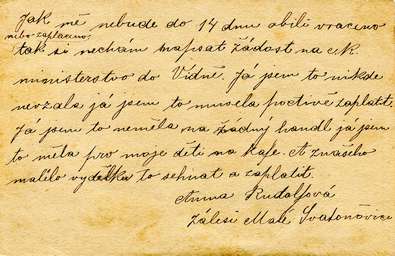 Jak mě nebude do 14 dnu obilí vraceno
nebo zaplaceno,
tak si nechám napsat žádost na ck.
ministerstvo do Vídně. Já jsem to nikde
nevzala já jsem to musela poctivě zaplatit.
Já jsem to neměla na žádný handl já jsem
to měla pro moje děti na kafe. A z našeho
malílo vydělku to sehnat a zaplatit.
Anna Rudolfová
Zálesí Malé Svatoňovice